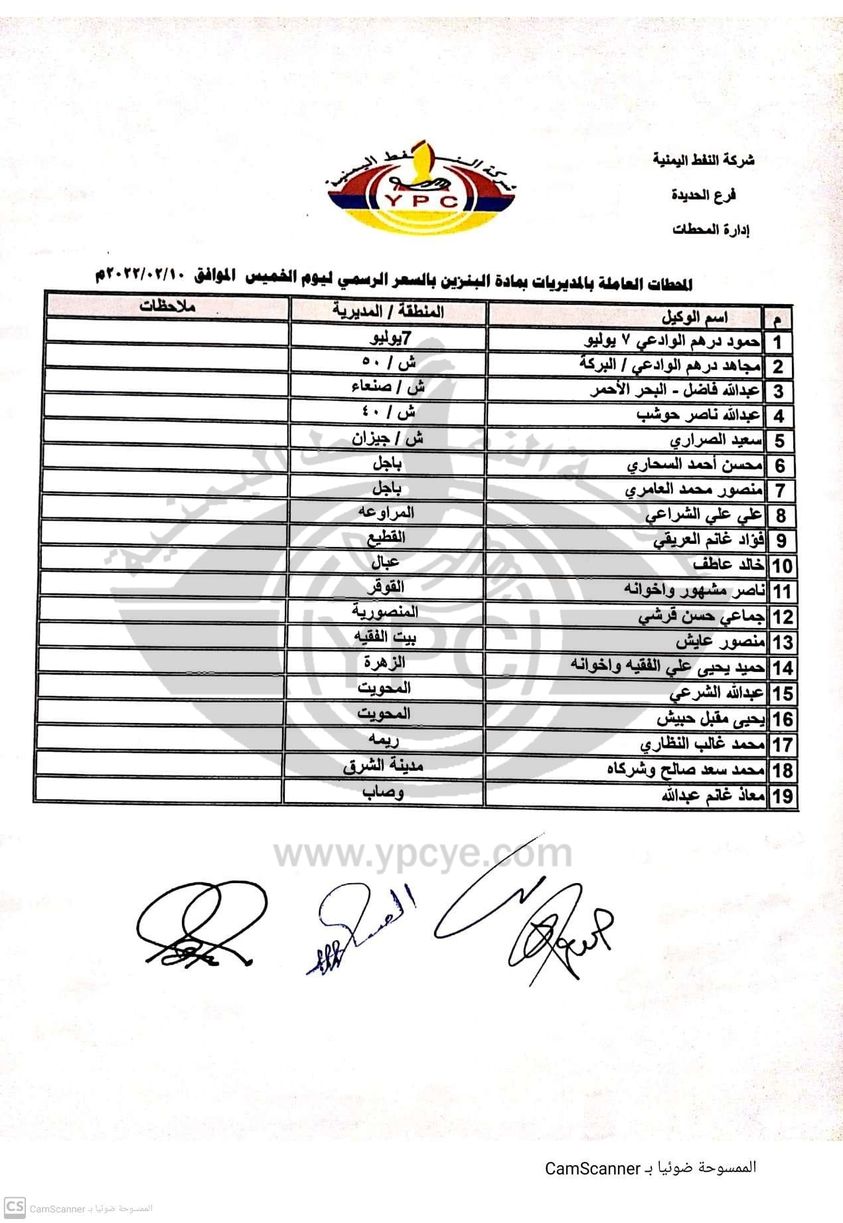 شركة النفط اليمنية
فرع الحديدة
إدارة المحطات
شركة النفط اليمنية
YPC
المحطات العاملة بالمديريات بمادة البنزين بالسعر الرسمي ليوم الخميس الموافق ٢٠٢٢/٠٢/١٠م
م اسم الوكيل المنطقة / المديرية ملاحظات
1 حمود درهم الوادعي ٧ يوليو 7يوليو
2 مجاهد درهم الوادعي / البركة ش / ٥٠
3 عبدالله فاضل - البحر الأحمر ش / صنعاء
4 عبدالله ناصر حوشب ش / ٤٠
5 سعيد الصراري ش / جيزان
6 محسن أحمد السحاري باجل
7 منصور محمد العامري باجل
8 علي علي الشراعي المراوعه
9 فؤاد غانم العريقي القطيع
10 خالد عاطف عبال
11 ناصر مشهور واخوانه القوقر
12 جماعي حسن قرشي المنصورية
13 منصور عايش بيت الفقيه
14 حميد يحيى علي الفقيه واخوانه الزهرة
15 عبدالله الشرعي المحويت
16 يحيى مقبل حبيش المحويت
17 محمد غالب النظاري ريمه
18 محمد سعد صالح وشركاه مدينة الشرق
19 معاذ غانم عبدالله وصاب
شركة النفط اليمنية
YPC
www.ypcye.com
الممسوحة ضوئيا بـ CamScanner
CS CamScanner الممسوحة ضوئيا بـ